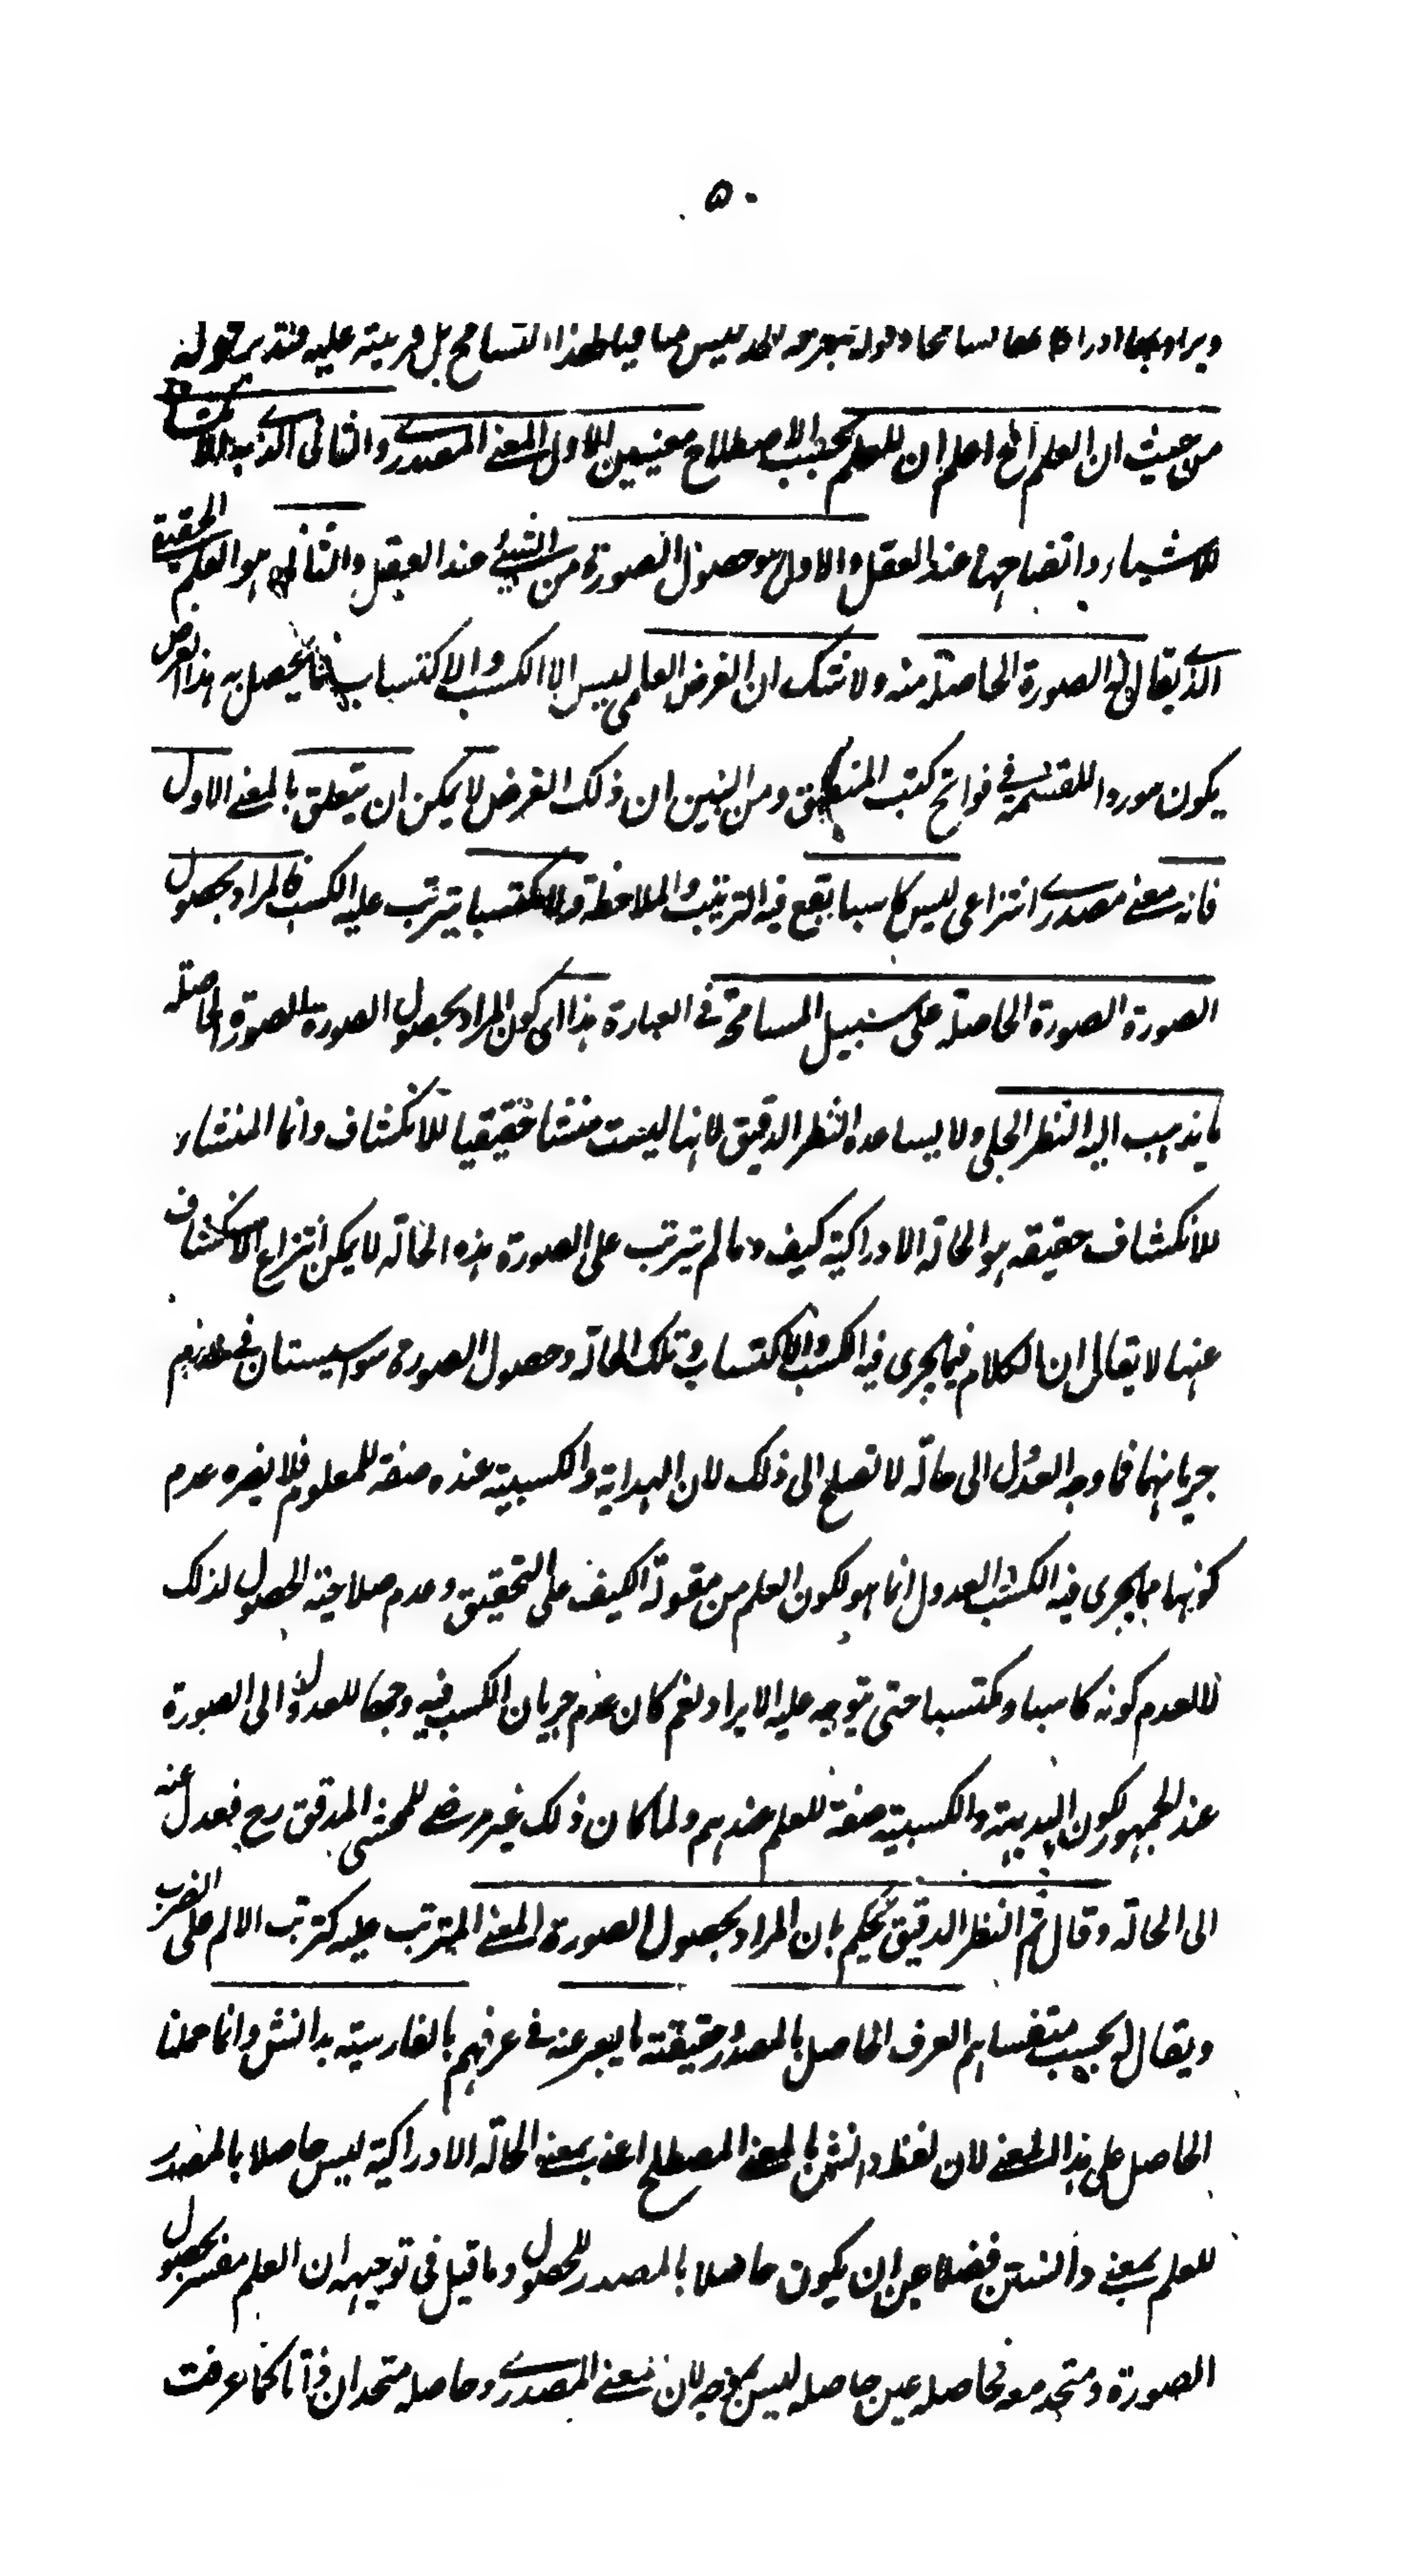 ٥٠
ويراد بها ادراكا تسامحا وقوله ليس منافيا لهذا التسامح بل قرينة عليه فتدبر قوله
من حيث ان العلم الخ اعلم ان للعلم بحسب الاصطلاح معنيين الاول المعنى المصدري والثاني الذي به الانكشاف
للاشياء واتضاحها عند العقل والاول هو حصول الصورة من الشيء عند العقل والثاني هو العلم الحقيقي
الذي يقال له الصورة الحاصلة منه ولا شك ان الغرض العلمي ليس الا الكسب والاكتساب فما يحصل به هذا الغرض
يكون موردا للقسمة في فواتح كتب المنطق ومن البين ان ذلك الغرض لا يمكن ان يتعلق بالمعنى الاول
فانه معنى مصدري انتزاعي ليس كاسبا يقع فيه الترتيب والملاحظة ولا مكتسبا يترتب عليه الكسب فالمراد بحصول
الصورة الصورة الحاصلة على سبيل المسامحة في العبارة هذا اى كون المراد بحصول الصورة الصورة الحاصلة
ما يذهب اليه النظر الجلي ولا يساعده النظر الدقيق لانها ليست منشا حقيقيا للانكشاف وانما المنشا
للانكشاف حقيقة هو الحالة الادراكية كيف وما لم يترتب على الصورة هذه الحالة لا يمكن انتزاع الانكشاف
عنها لا يقال ان الكلام فيما يجرى فيه الكسب والاكتساب وتلك الحالة وحصول الصورة سواسيتان في عدم
جريانهما فما وجه العدول الى حالة لا تصلح الى ذلك لان البداهة والكسبية عنده صفة للمعلوم فلا يضره عدم
كونها مما يجرى فيه الكسب العدول انما هو لكون العلم من مقولة الكيف على التحقيق وعدم صلاحية الحصول لذلك
لا لعدم كونه كاسبا ومكتسبا حتى يتوجه عليه الايراد نعم كان عدم جريان الكسب فيه وجها للعدول الى الصورة
عند الجمهور لكون البديهية والكسبية صفة للعلم عندهم ولما كان ذلك غير مرضي للمحشي المدقق رح فعدل عنه
الى الحالة وقال ثم النظر الدقيق يحكم بان المراد بحصول الصورة المعنى المترتب عليه كترتب الالم على الضرب
ويقال له بحسب متفاهم العرف الحاصل بالمصدر حقيقة ما يعبر عنه في عرفهم بالفارسية بدانش وانما حملنا
الحاصل على هذا المعنى لان لفظ دانش بالمعنى المصطلح اعنى بمعنى الحالة الادراكية ليس حاصلا بالمصدر
للعلم بمعنى دانستن فضلا عن ان يكون حاصلا بالمصدر للحصول وما قيل في توجيهه ان العلم مفسر بحصول
الصورة ومتحد معه فحاصله عين حاصله ليس بموجه لان معنى المصدري وحاصله متحدان ذاتا كما عرفت